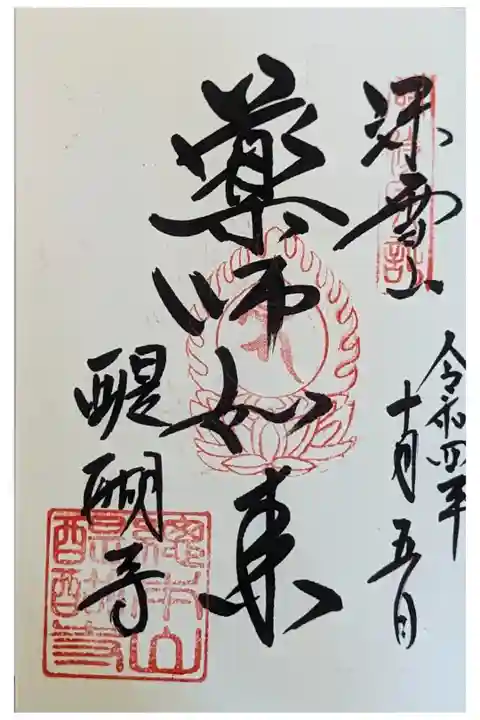 深雪山
令和四年
十月五日
薬師如来
醍醐寺
總本山
醍醐寺